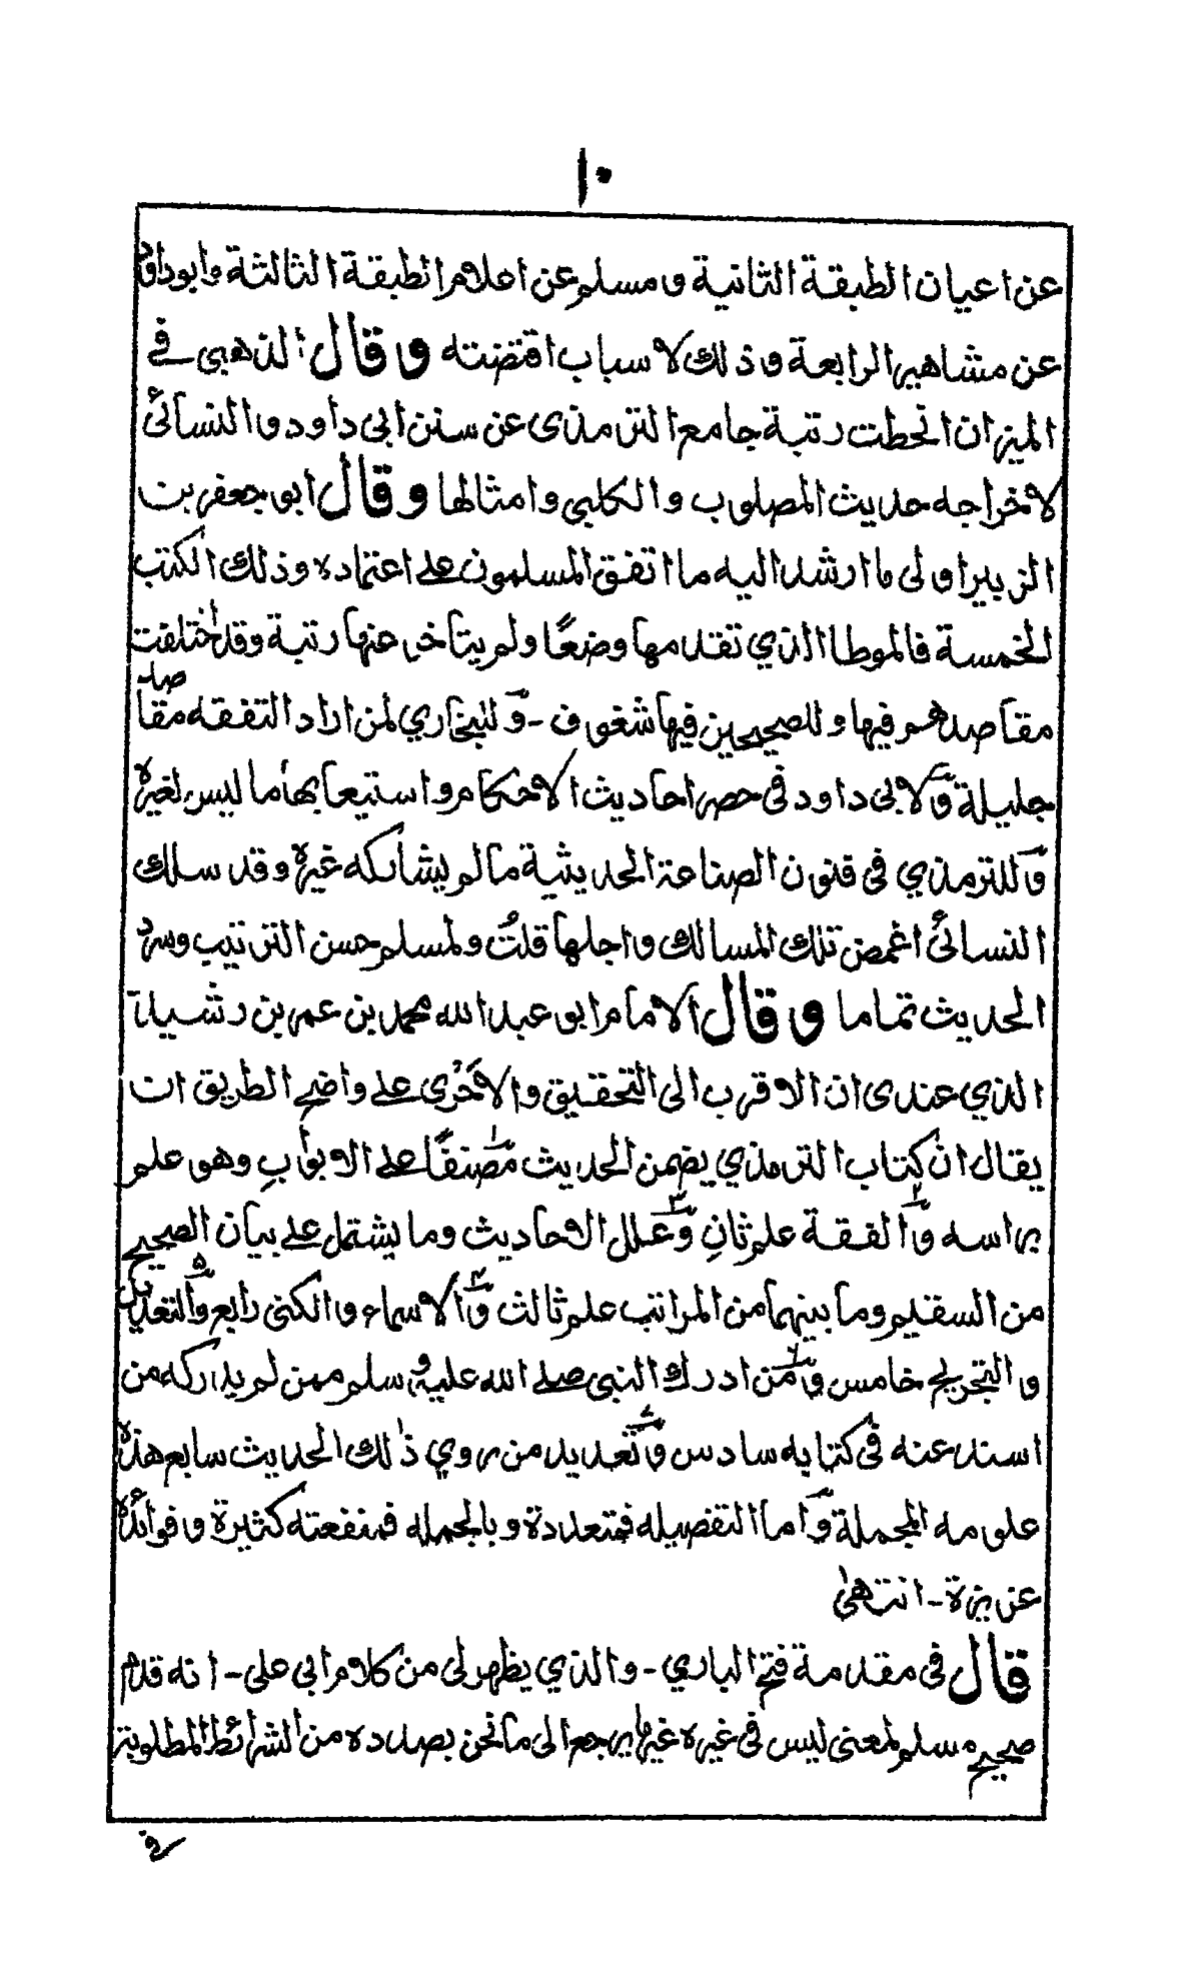 ١٠
عن اعيان الطبقة الثانية ومسلم عن اعلام الطبقة الثالثة وابوداؤد
عن مشاهير الرابعة وذلك لاسباب اقتضته وقال الذهبي في
الميزان انحطت رتبة جامع الترمذى عن سنن ابى داود والنسائى
لاخراجه حديث المصلوب والكلبي وامثالها وقال ابو جعفر بن
الزبير اولى ما ارشد اليه ما اتفق المسلمون على اعتماده وذلك الكتب
الخمسة فالموطا الذي تقدمها وضعًا ولم يتاخر عنها رتبة وقد اختلفت
مقاصدهم فيها وللصحيحين فيها شغوف - وللبخاري لمن اراد التفقه مقاصد
جليلة ولابى داود فى حصر احاديث الاحكام واستيعابها ما ليس لغيره
وللترمذي فى فنون الصناعة الحديثية ما لم يشاركه غيره وقد سلك
النسائى اغمض تلك المسالك واجلها قلتُ ولمسلم حسن الترتيب وسرد
الحديث تماما وقال الامام ابو عبد الله محمد بن عمر بن رشيد
الذي عندى ان الاقرب الى التحقيق والاحرى على واضح الطريق ان
يقال ان كتاب الترمذي يضمن الحديث مصنفًا على الابوابِ وهو علم
براسه ٢ والفقة علم ثانِ ٣ وعلل الاحاديث وما يشتمل على بيان الصحيح
من السقيم وما بينهما من المراتب علم ثالث ٤ والاسماء والكنى رابع ٥ والتعديل
والتجريح خامس ٦ ومن ادرك النبى صلى الله عليه وسلم ممن لم يدركه من
اسند عنه فى كتابه سادس ٧ وتعديد من روي ذلك الحديث سابع هذه
علومه المجملة واما التفصيله فمتعددة وبالجمله فمنفعته كثيرة وفوائده
عزيزة - انتهىٰ
قال فى مقدمة فتح الباري - والذي يظهر لى من كلام ابى على - انه قدم
صحيح مسلم لمعنى ليس فى غيره غير ما يرجع الى ما نحن بصدده من الشرائط المطلوبة
في